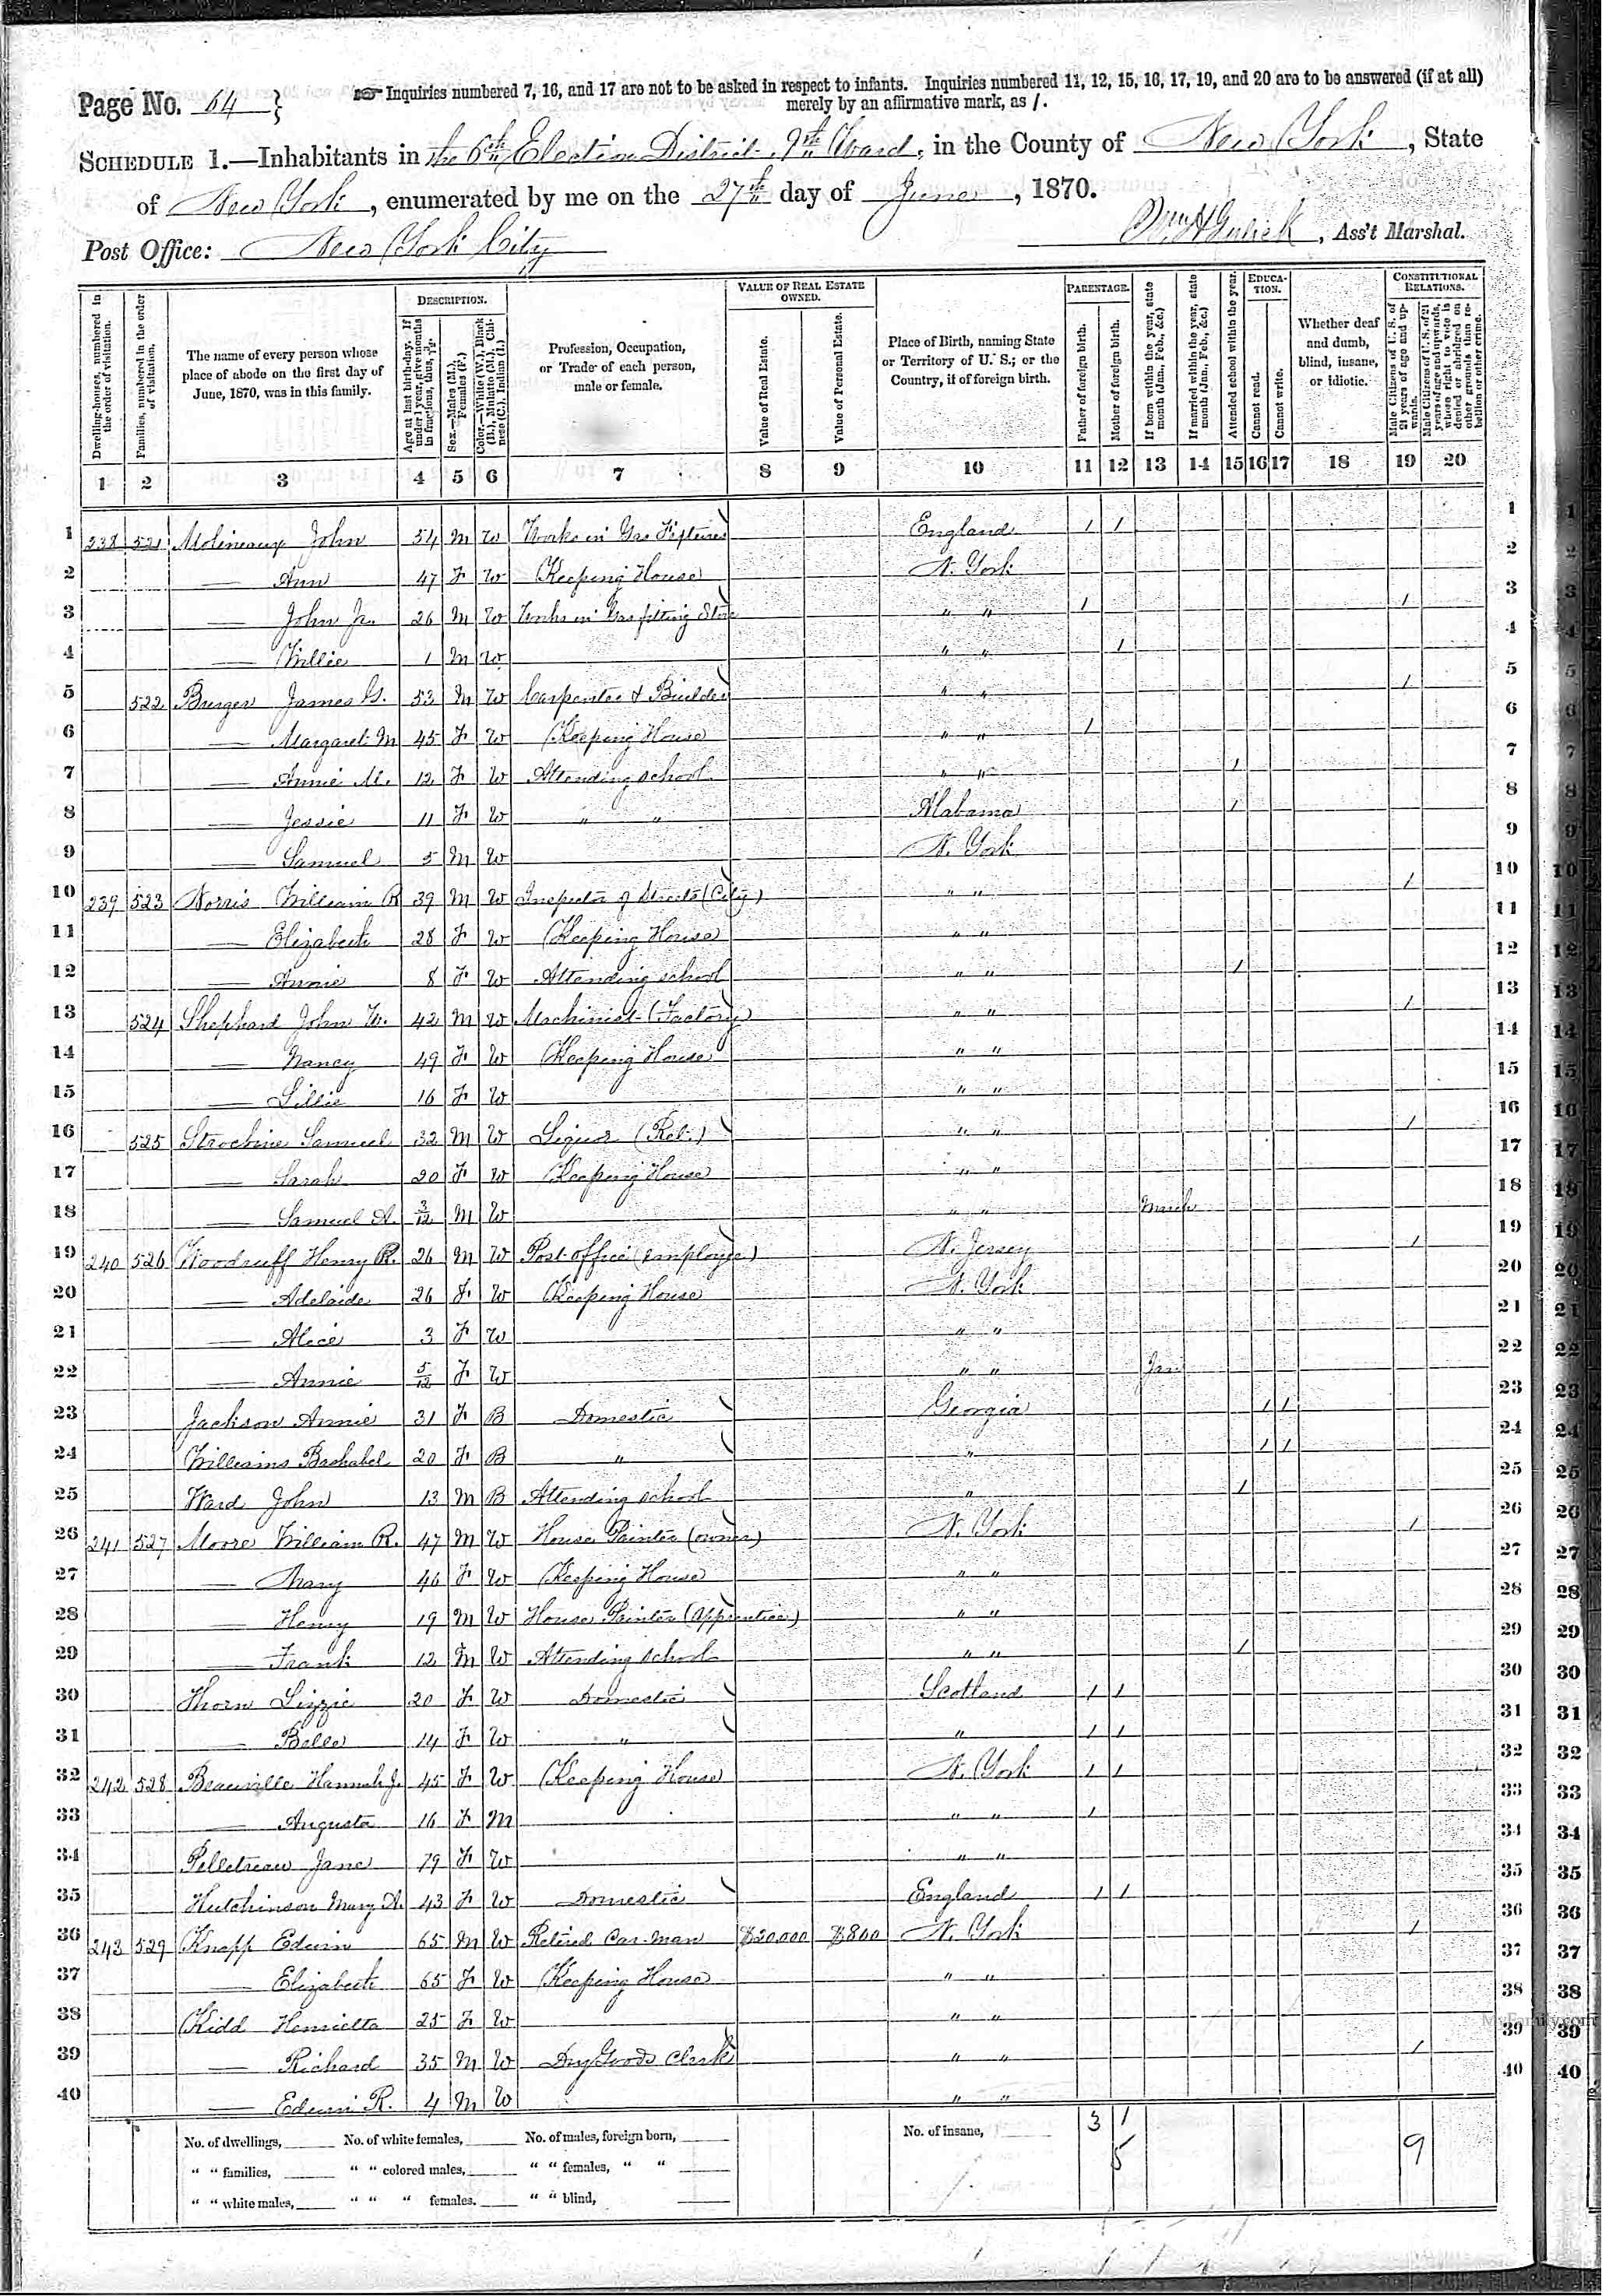 Page No. 64
☞ Inquiries numbered 7, 16, and 17 are not to be asked in respect to infants. Inquiries numbered 11, 12, 15, 16, 17, 19, and 20 are to be answered (if at all)
merely by an affirmative mark, as /.
SCHEDULE 1.—Inhabitants in the 6th Election District 9th Ward, in the County of New York, State
of New York, enumerated by me on the 27th day of June, 1870.
Post Office: New York City
Wm H Gulick, Ass't Marshal.
Dwelling-houses, numbered in the order of visitation.
Families, numbered in the order of visitation.
The name of every person whose place of abode on the first day of June, 1870, was in this family.
DESCRIPTION.
Age at last birth-day. If under 1 year, give months in fractions, thus, 3/12.
Sex.—Males (M.), Females (F.)
Color.—White (W.), Black (B.), Mulatto (M.), Chinese (C.), Indian (I.)
Profession, Occupation, or Trade of each person, male or female.
VALUE OF REAL ESTATE OWNED.
Value of Real Estate.
Value of Personal Estate.
Place of Birth, naming State or Territory of U. S.; or the Country, if of foreign birth.
PARENTAGE.
Father of foreign birth.
Mother of foreign birth.
If born within the year, state month (Jan., Feb., &c.)
If married within the year, state month (Jan., Feb., &c.)
EDUCATION.
Attended school within the year.
Cannot read.
Cannot write.
Whether deaf and dumb, blind, insane, or idiotic.
CONSTITUTIONAL RELATIONS.
Male Citizens of U. S. of 21 years of age and upwards.
Male Citizens of U. S. of 21 years of age and upwards, whose right to vote is denied or abridged on other grounds than rebellion or other crime.
1 2 3 4 5 6 7 8 9 10 11 12 13 14 15 16 17 18 19 20
1 238 521 Molineaux John 54 M W Works in Gas Fixtures England / / 1
2 — Ann 47 F W Keeping House N. York 2
3 — John Jr. 26 M W Works in Gas fitting Store " " / / 3
4 — Willie 1 M W " " / 4
5 522 Burger James G. 53 M W Carpenter & Builder " " / 5
6 — Margaret M 45 F W Keeping House " " / 6
7 — Annie M. 12 F W Attending school " " / 7
8 — Jessie 11 F W " " Alabama / 8
9 — Samuel 5 M W N. York 9
10 239 523 Norris William R 39 M W Inspector of Streets (City) " " / 10
11 — Elizabeth 28 F W Keeping House " " 11
12 — Annie 8 F W Attending school " " / 12
13 524 Shephard John W. 42 M W Machinist (Factory) " " / 13
14 — Nancy 49 F W Keeping House " " 14
15 — Lillie 16 F W " " 15
16 525 Strockine Samuel 32 M W Liquor (Ret.) " " / 16
17 — Sarah 20 F W Keeping House " " 17
18 — Samuel A. 3/12 M W " " March 18
19 240 526 Woodruff Henry R. 26 M W Post-office (employee) N. Jersey / 19
20 — Adelaide 26 F W Keeping House N. York 20
21 — Alice 3 F W " " 21
22 — Annie 5/12 F W " " Jan 22
23 Jackson Annie 31 F B Domestic Georgia / / 23
24 Williams 20 F B " " / / 24
25 Ward John 13 M B Attending school " / 25
26 241 527 Moore William R. 47 M W House Painter (owner) N. York / 26
27 — Mary 46 F W Keeping House " " 27
28 — Henry 19 M W House Painter (Apprentice) " " 28
29 — Frank 12 M W Attending school " " / 29
30 Thorn Lizzie 20 F W Domestic Scotland / / 30
31 — Belle 14 F W " " / / 31
32 242 528 Beauville Hannah J. 45 F W Keeping House N. York / / 32
33 — Augusta 16 F M " " / 33
34 Pelletreau Jane 79 F W " " 34
35 Hutchinson Mary A. 43 F W Domestic England / / 35
36 243 529 Knapp Edwin 65 M W Retired Car-man $20,000 $800 N. York / 36
37 — Elizabeth 65 F W Keeping House " " 37
38 Kidd Henrietta 25 F W " " 38
39 — Richard 35 M W Dry Goods Clerk " " / 39
40 — Edwin R. 4 M W " " 40
No. of dwellings, No. of white females, No. of males, foreign born, No. of insane, 3 1
" " families, " " colored males, " " females, " " 5 9
" " white males, " " " females. " " blind,
MyFamily.com